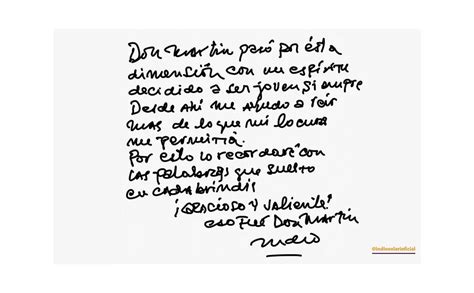 Don Martin pasó por ésta
dimensión con un espíritu
decidido a ser joven siempre
Desde ahí me ayudó a reír
mas de lo que mi locura
me permitía.
Por esto lo recordaré con
las palabras que suelto
en cada brindis
¡GRACIOSO Y valiente!
eso Fué Don Martin
Indio
@indiosolarioficial